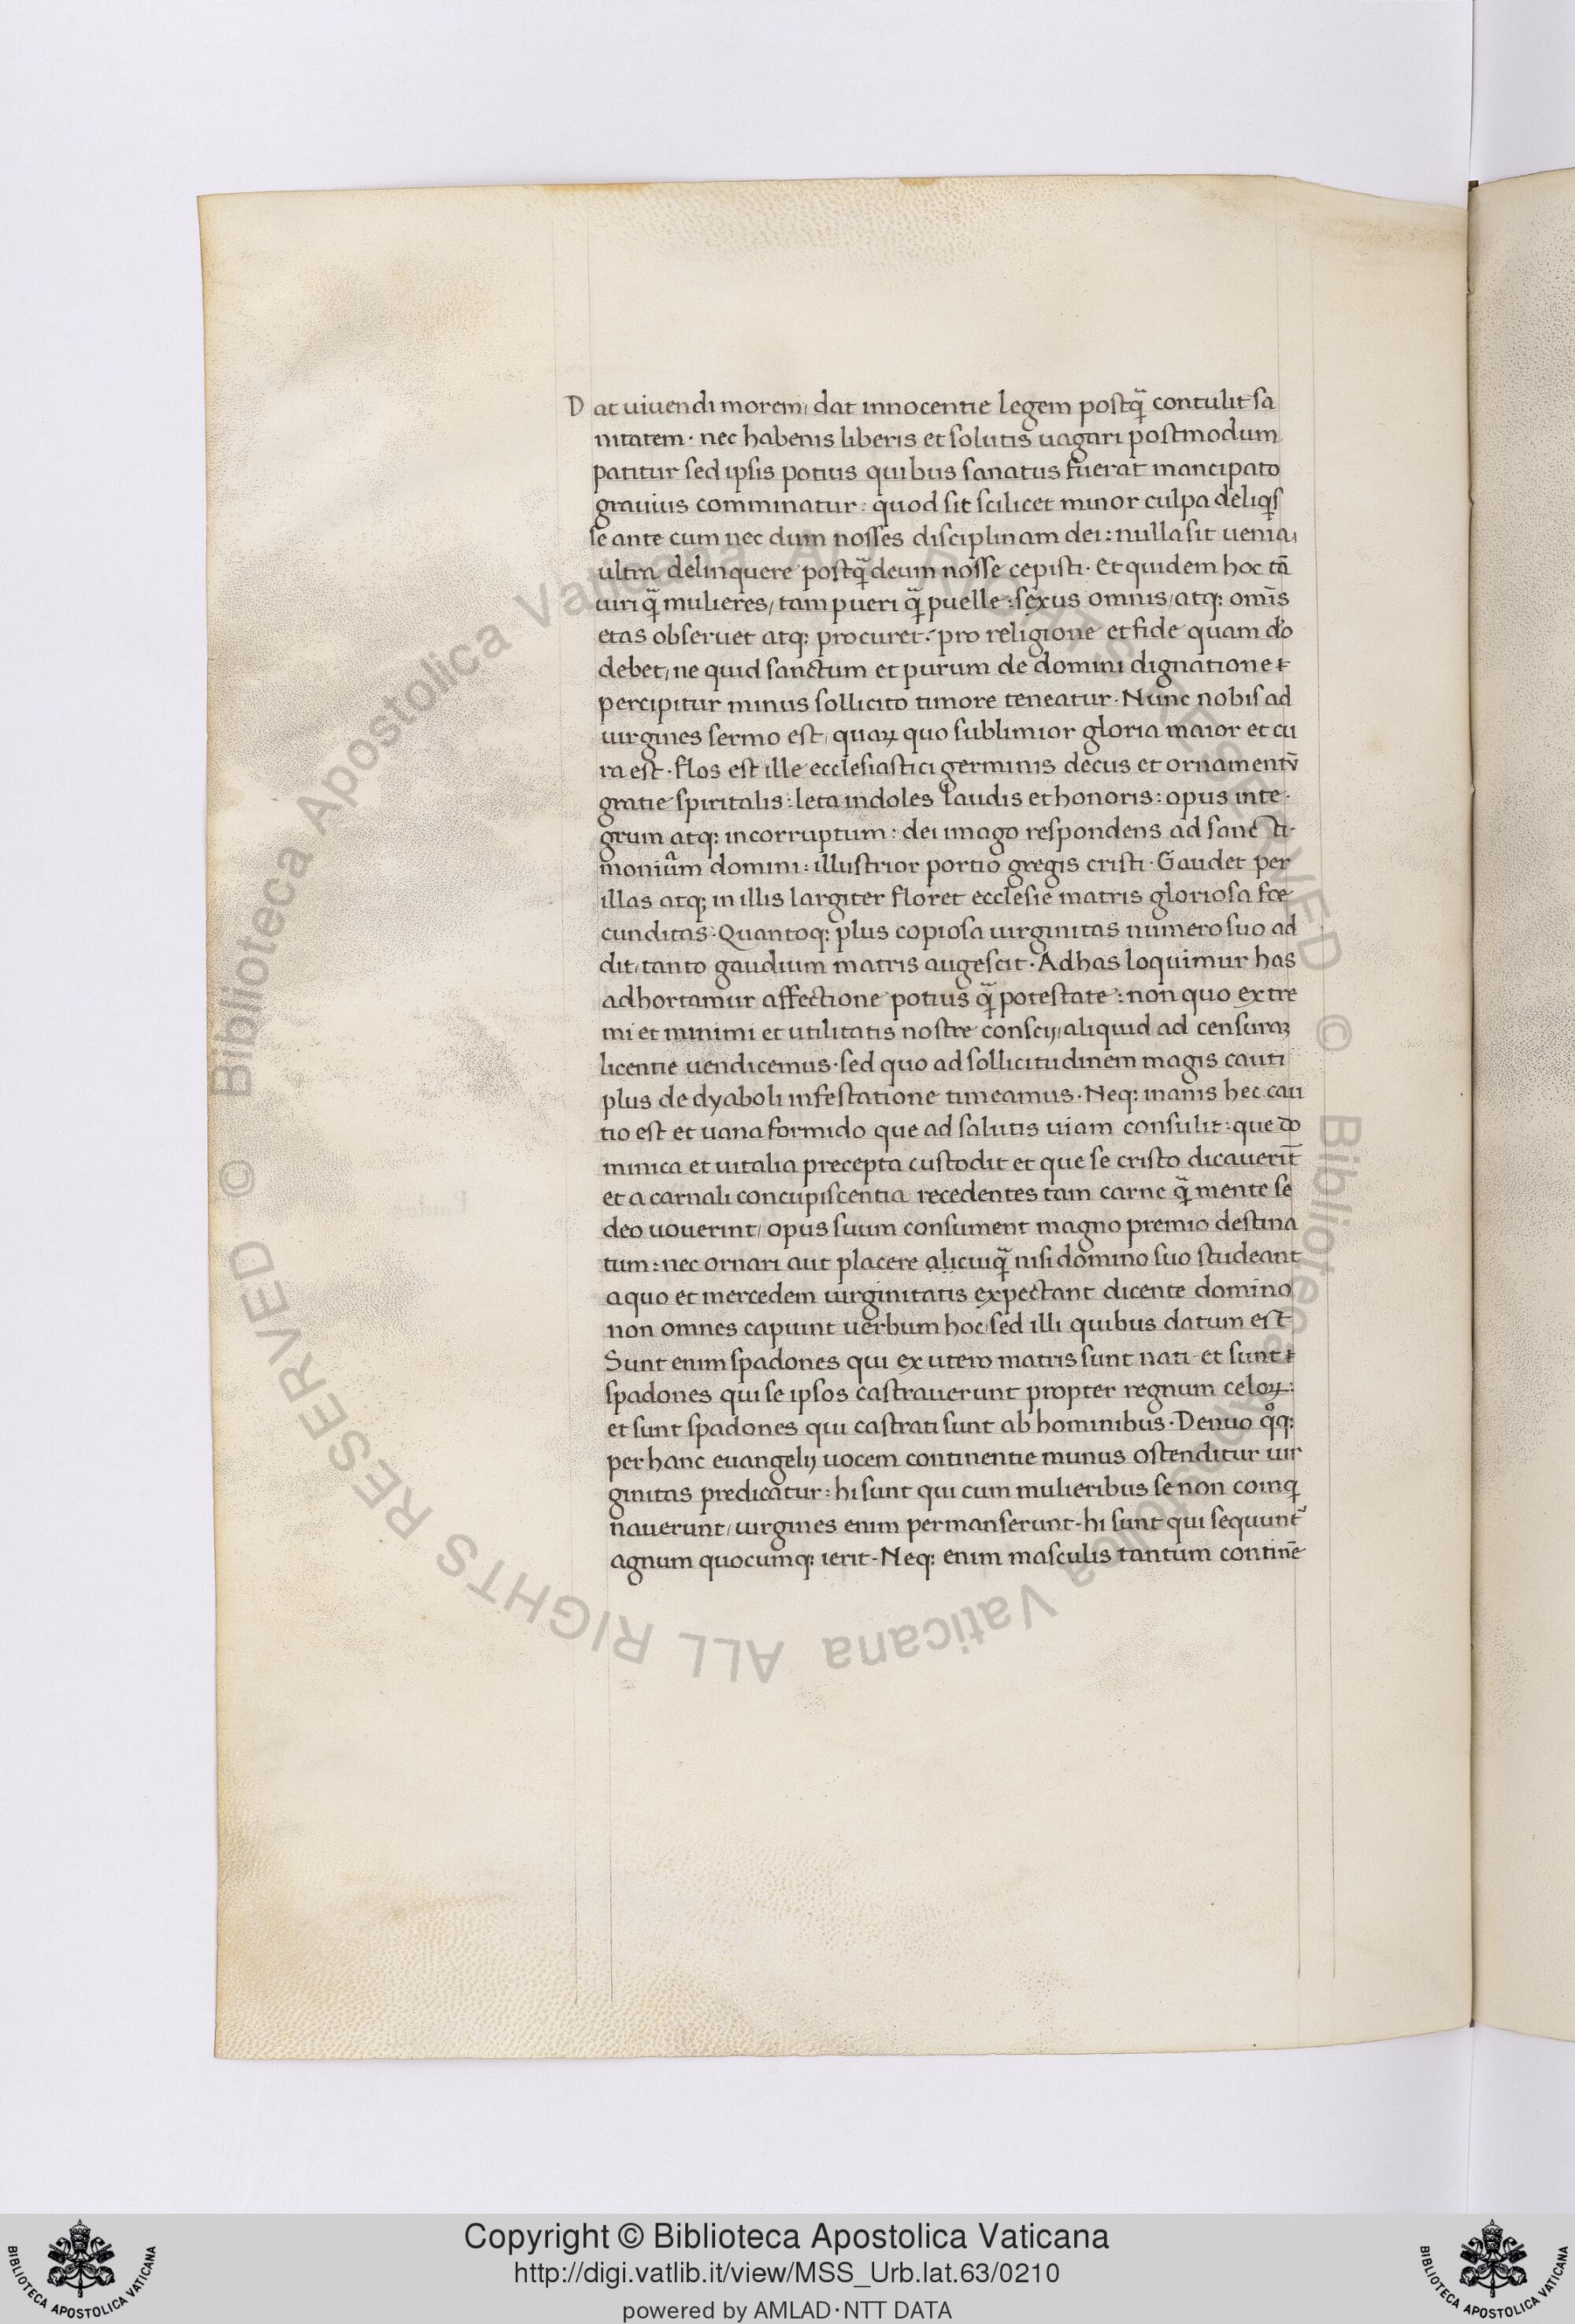 Dat uiuendi morem, dat innocentie legem postq̃ contulit sa
nitatem · nec habenis liberis et solutis uagari postmodum
patitur sed ipsis potius quibus sanatus fuerat mancipato
grauius comminatur : quod sit scilicet minor culpa deliq̢s
se ante cum nec dum nosses disciplinam dei : nulla sit uenia,
ultra delinquere postq̃ deum nosse cepisti · Et quidem hoc tā
uiri q̃ mulieres, tam pueri q̃ puelle : sexus omnis, atq: om̄s
etas obseruet atq: procuret : pro religione et fide quam do̓
debet, ne quid sanctum et purum de domini dignatione
percipitur minus sollicito timore teneatur · Nunc nobis ad
uirgines sermo est, quaꝝ quo sublimior gloria maior et cu
ra est · flos est ille ecclesiastici germinis decus et ornamentū
gratie spiritalis : leta indoles laudis et honoris : opus inte-
grum atq: incorruptum : dei imago respondens ad sancti-
moniam domini : illustrior portio gregis cristi · Gaudet per
illas atq; in illis largiter floret ecclesie matris gloriosa foe
cunditas · Quantoq: plus copiosa uirginitas numero suo ad
dit, tanto gaudium matris augescit · Ad has loquimur has
adhortamur affectione potius q̃ potestate : non quo extre
mi et minimi et utilitatis nostre conscij, aliquid ad censuraꝫ
licentie uendicemus · sed quo ad sollicitudinem magis cauti
plus de dyaboli infestatione timeamus · Neq: inanis hec cau
tio est et uana formido que ad salutis uiam consulit : que do
minica et uitalia precepta custodit et que se cristo dicauerīt
et a carnali concupiscentia recedentes tam carne q̃ mente se
deo uouerint, opus suum consument magno premio destina
tum : nec ornari aut placere alicuiq̃ nisi domino suo studeant
a quo et mercedem uirginitatis expectant dicente domino
non omnes capiunt uerbum hoc, sed illi quibus datum est
Sunt enim spadones qui ex utero matris sunt nati · et sunt
spadones qui se ipsos castrauerunt propter regnum celoꝝ :
et sunt spadones qui castrati sunt ab hominibus · Denuo qͦq:
per hanc euangelij uocem continentie munus ostenditur uir
ginitas predicatur : hi sunt qui cum mulieribus se non coinq̢
nauerunt, uirgines enim permanserunt - hi sunt qui sequunt᷑
agnum quocunq: ierit - Neq: enim masculis tantum contin̄e
© Biblioteca Apostolica Vaticana ALL RIGHTS RESERVED © Biblioteca Apostolica Vaticana ALL RIGHTS RESERVED
BIBLIOTECA APOSTOLICA VATICANA
Copyright © Biblioteca Apostolica Vaticana
http://digi.vatlib.it/view/MSS_Urb.lat.63/0210
powered by AMLAD·NTT DATA
BIBLIOTECA APOSTOLICA VATICANA